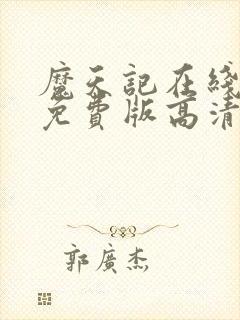 魔天記在綫
免費版高清
郭廣杰